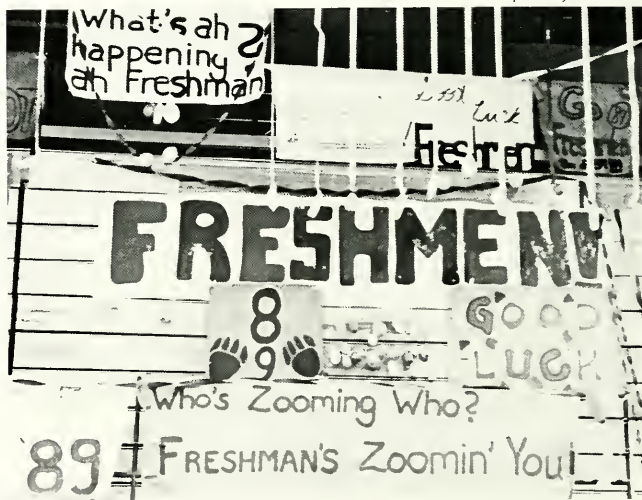 What's ah
happening ?
ah Freshman
Luck
Freshmen
Go
Freshmen
FRESHMEN
8
9
GOOD
LUCK
Who's Zooming Who?
'89
FRESHMAN'S Zoomin' You!